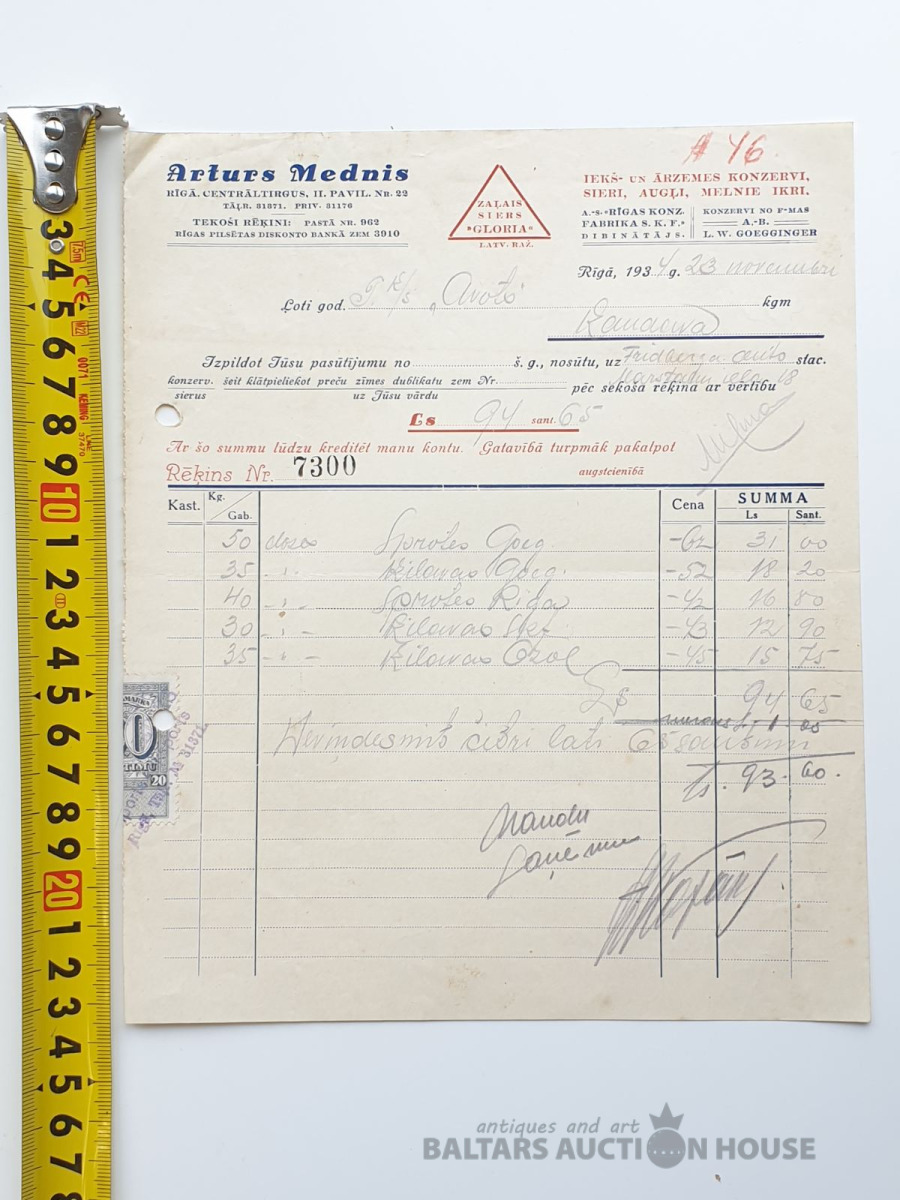 # 46.
Arturs Mednis
RĪGĀ, CENTRĀLTIRGUS, II. PAVIL. NR. 22
TĀĻR. 31371. PRIV. 31176
TEKOŠI RĒĶINI: PASTĀ NR. 962
RĪGAS PILSĒTAS DISKONTO BANKĀ ZEM 3910
ZAĻAIS
SIERS
"GLORIA"
LATV. RAŽ.
IEKŠ- UN ĀRZEMES KONZERVI,
SIERI, AUGĻI, MELNIE IKRI.
A.-S. "RĪGAS KONZ.
FABRIKA S. K. F."
DIBINĀTĀJS.
KONZERVI NO F-MAS
A.-B.
L. W. GOEGGINGER
Rīgā, 1934 g. 23 novembri
Ļoti god. P. K/S "Avots" kgm
Kandavā
Izpildot Jūsu pasūtījumu no š. g., nosūtu, uz auto stac.
konzerv. šeit klātpieliekot preču zīmes dublikatu zem Nr.
sierus uz Jūsu vārdu
iela 18
pēc sekoša rēķina ar vērtību
Ls 94 sant. 65
Ar šo summu lūdzu kreditēt manu kontu. Gatavībā turpmāk pakalpot
augstcienībā
Rēķins Nr. 7300
Kast. Kg. Gab. Cena SUMMA
Ls Sant.
50 doses Šprotes Goeg. -62 31 00
35 -"- Ķilavas Goeg. -52 18 20
40 -"- Šprotes Riga -42 16 80
30 -"- Ķilavas -43 12 90
35 -"- Ķilavas Ozol -45 15 75
Ls 94 65
Deviņdesmit četri lati 65 santimi
Ls. 93. 60.
Naudu
saņēmu
20
31371
antiques and art
BALTARS AUCTION HOUSE